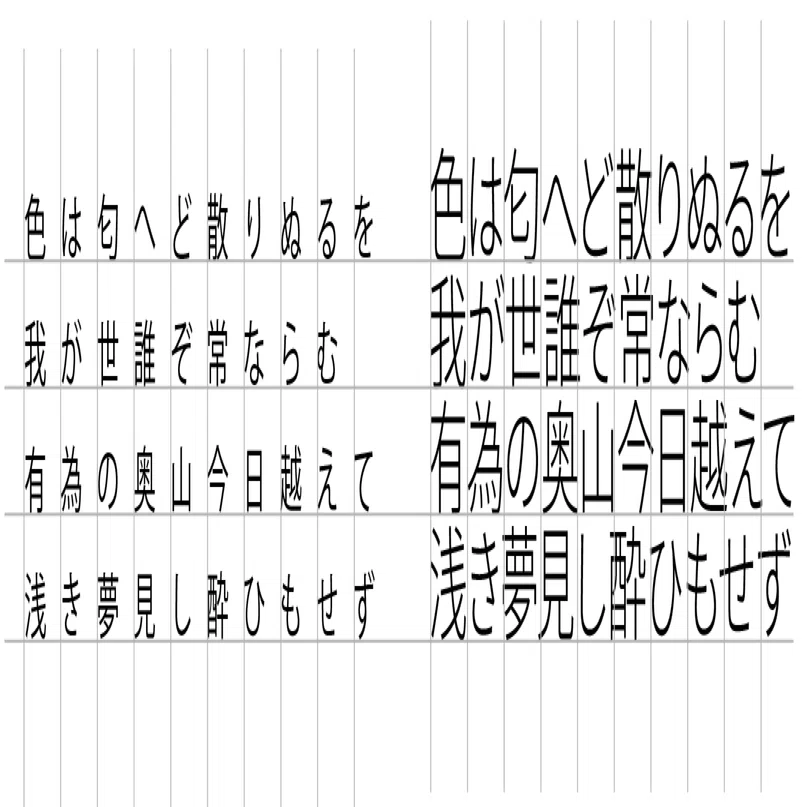 色は匂へど散りぬるを
我が世誰ぞ常ならむ
有為の奥山今日越えて
浅き夢見し酔ひもせず
色は匂へど散りぬるを
我が世誰ぞ常ならむ
有為の奥山今日越えて
浅き夢見し酔ひもせず